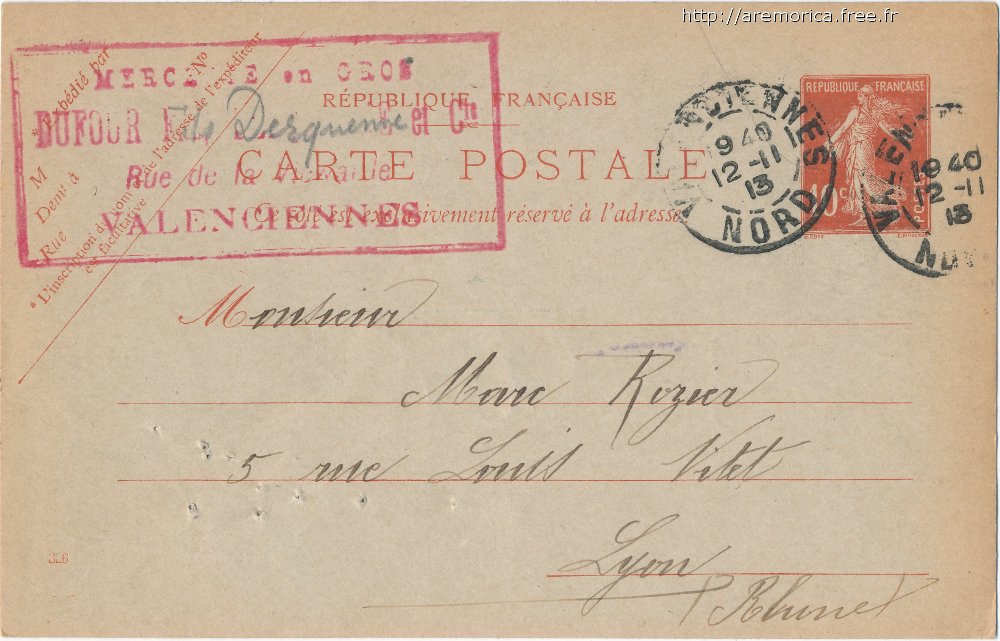 http://aremorica.free.fr
* Expédié par
M
Demt à
Rue
No
* L'inscription du nom et de l'adresse de l'expéditeur
est facultative
MERCERIE en GROS
DUFOUR Fils Desquenne et Cie
Rue de la
VALENCIENNES
RÉPUBLIQUE FRANÇAISE
CARTE POSTALE
Ce côté est exclusivement réservé à l'adresse
RÉPUBLIQUE FRANÇAISE
10c
POSTES
VALENCIENNES
19 40
12 -11
13
NORD
19 40
12 -11
13
Monsieur
Marc Rozier
5 rue Louis Vitet
Lyon
(Rhone)
326